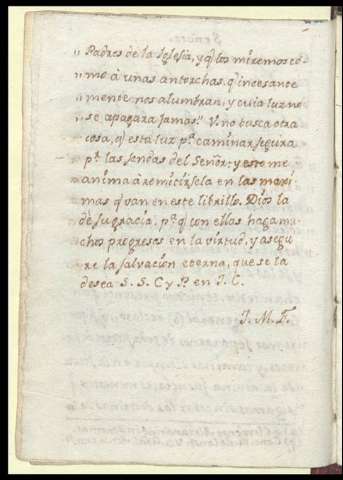 „ Padres de la Iglesia, y q.e los miremos co
„ mo à unas antorchas, q.e incesante
„ mente nos alumbran, y cuia luz no
„ se apagara Jamas." V. no busca otra
cosa, q.e esta luz p.a caminar segura
p.r las sendas del Señor; y esto me
anima à remitirsela en las maxi
mas q.e van en este librillo. Dios la
dè su gracia, p.a q.e con ellas haga mu
chos progresos en la virtud, y asegu
re la salvacion eterna, que se la
desea S. S. C. y P. en J. C.
J. M. F.